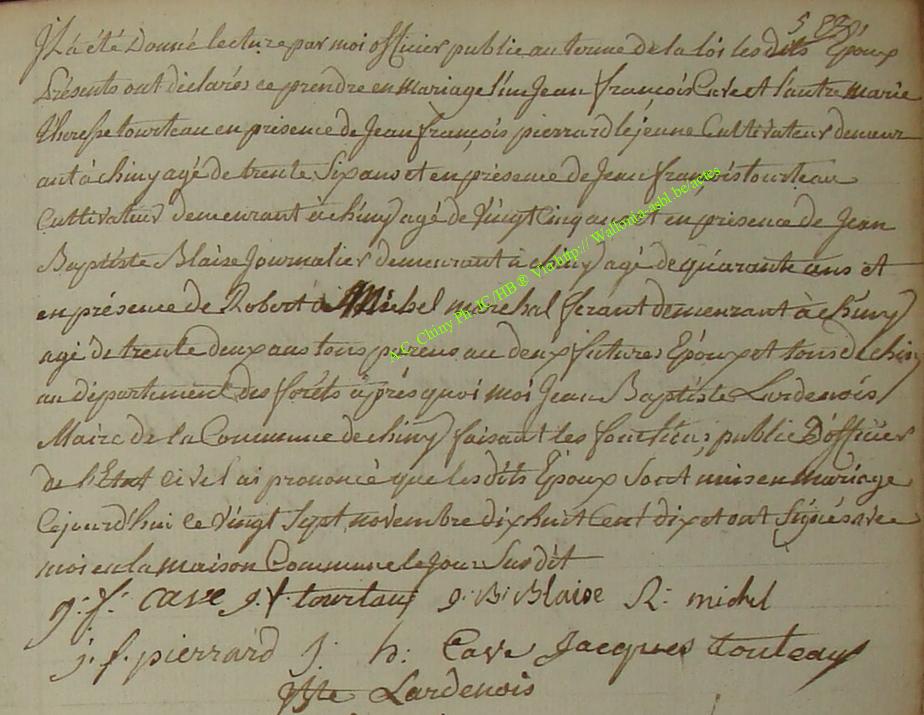 583
Il a été Donné lecture par moi officier public au terme de la loi les dits Epoux
Présents ont déclarés ce prendre en mariage l'un Jean françois Cave et l'autre marie
theresse tourteau en présence de Jean françois pierrard le jeune Cultivateur demeur
ant à chiny agé de trente Six ans et en présence de Jean françois tourteau
Cultivateur demeurant à chiny agé de Vingt Cinq ans et en présence de Jean
Baptiste Blaise Journalier demeurant à chiny agé de quarante ans et
en présence de Robert Michel marechal ferant demeurant à chiny
agé de trente deux ans tous parens au deux futures Epoux et tous de chiny
au département des forêts après quoi moi Jean Baptiste Lardenois
Maire de la Commune de chiny faisant les fonctions public D'officier
de l'Etat civel ai prononcé que les dits Epoux Sont unis en mariage
Cejourd'hui ce Vingt Sept novembre dix huit Cent dix et ont Signés avec
moi en la maison Commune le Jour Sur dit
j: f: cave j. f tourtau j: B: Blaise R: michel
j. f. pierrard J: h: Cave Jacques touteau
Lardenois
A.C. Chiny Ph JC/HB ® Via http:// Wallonia-asbl.be/actes